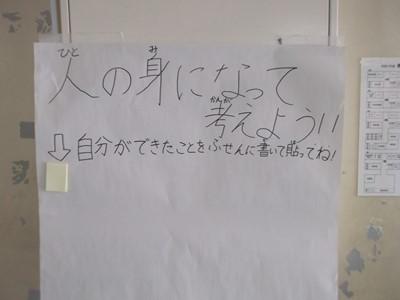 人の身になって
考えよう!!
⇩自分ができたことをふせんに書いて貼ってね!